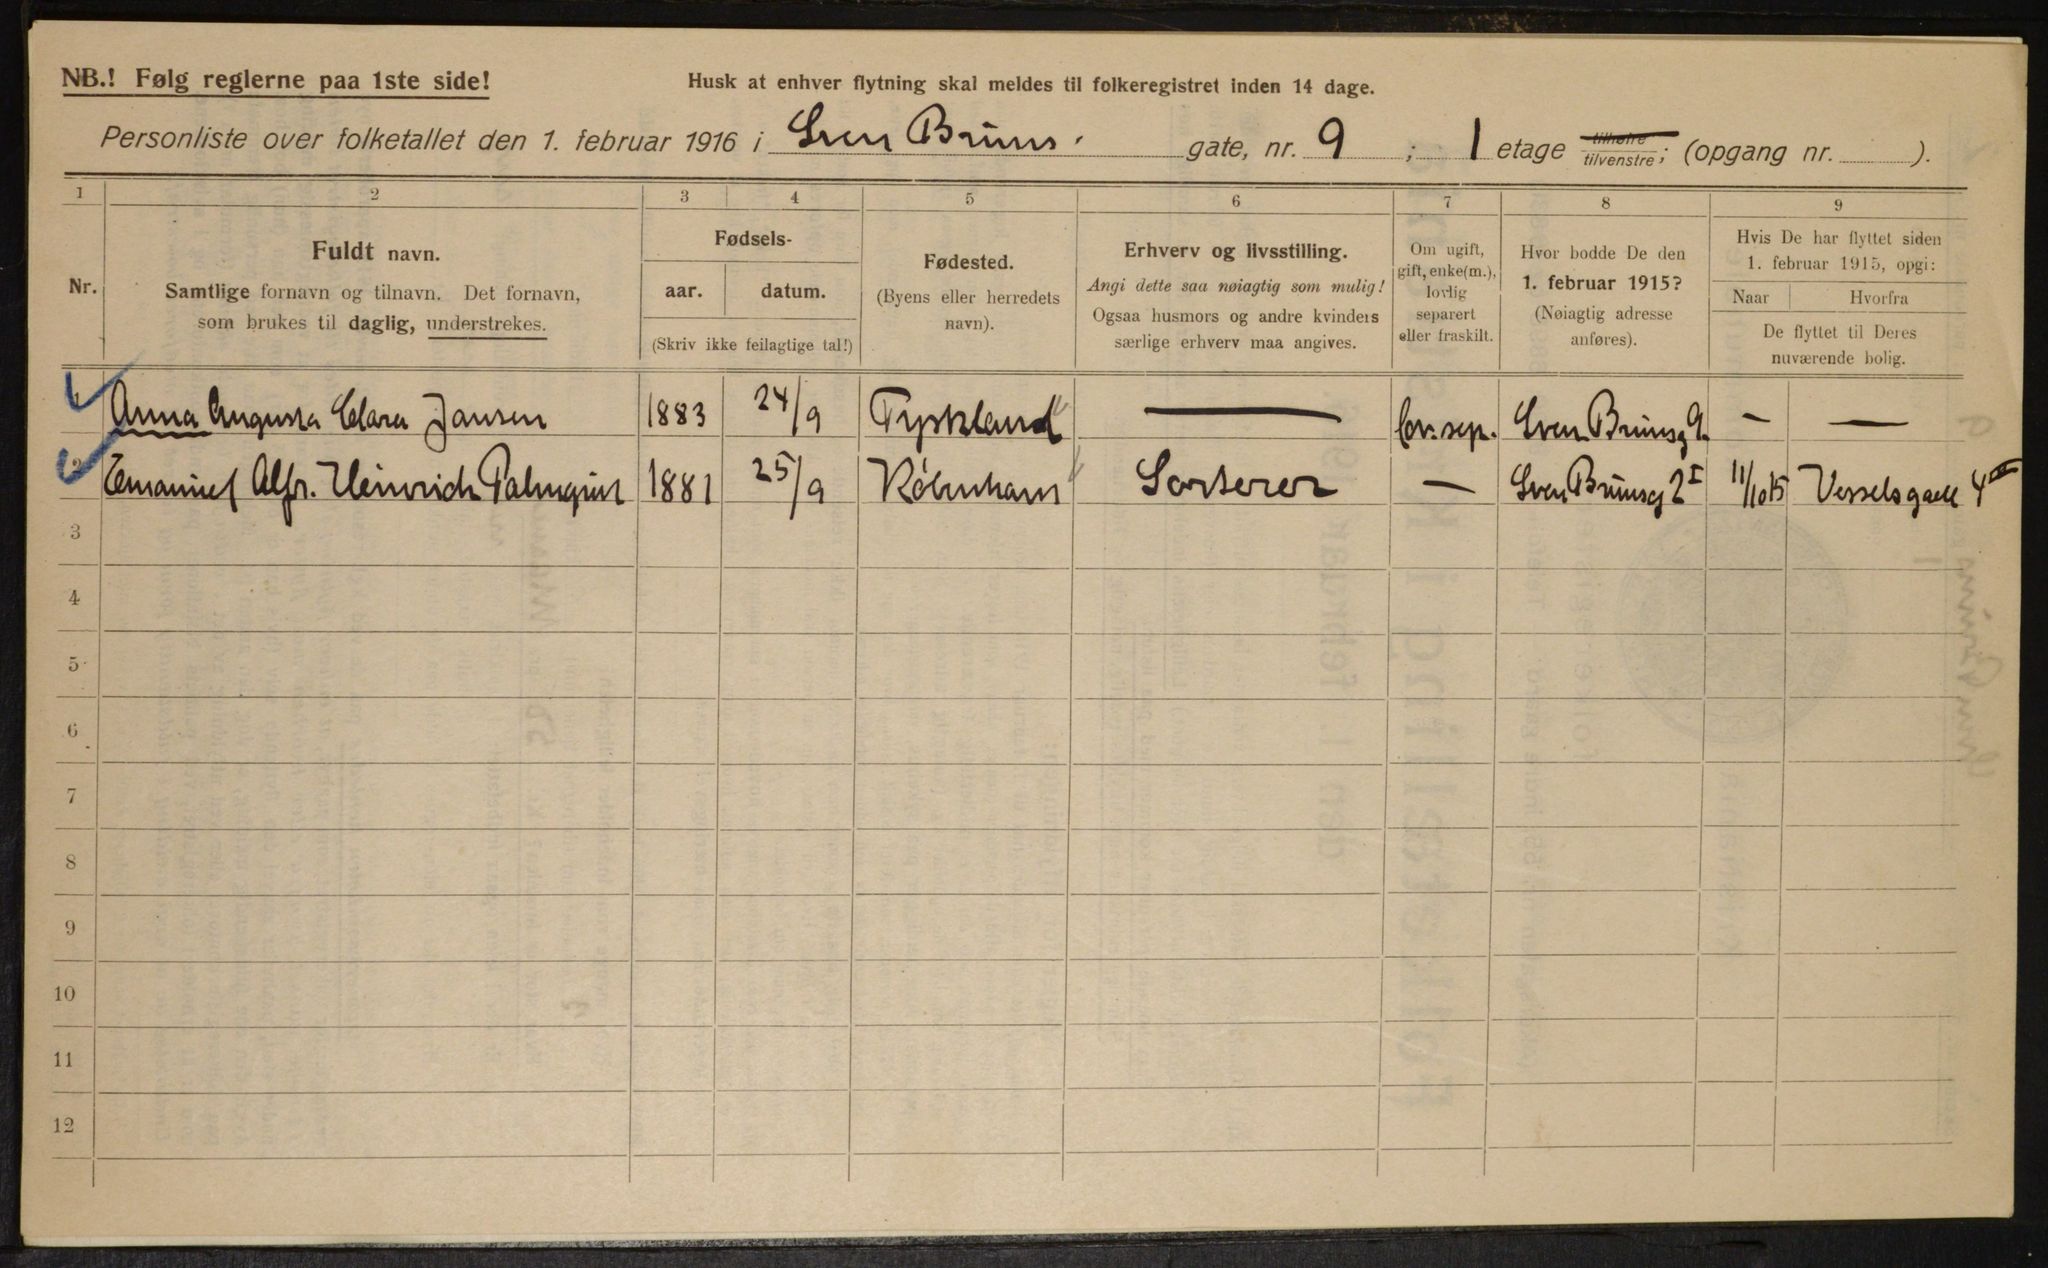 NB.! Følg reglerne paa 1ste side!
Husk at enhver flytning skal meldes til folkeregistret inden 14 dage.
Personliste over folketallet den 1. februar 1916 i Sven Bruns gate, nr. 9 ; 1 etage tilhøire tilvenstre; (opgang nr. ).
1 2 3 4 5 6 7 8 9
Nr.
Fuldt navn.
Samtlige fornavn og tilnavn. Det fornavn,
som brukes til daglig, understrekes.
Fødsels-
aar. datum.
(Skriv ikke feilagtige tal!)
Fødested.
(Byens eller herredets
navn).
Erhverv og livsstilling.
Angi dette saa nøiagtig som mulig!
Ogsaa husmors og andre kvinders
særlige erhverv maa angives.
Om ugift,
gift, enke(m.),
lovlig
separert
eller fraskilt.
Hvor bodde De den
1. februar 1915?
(Nøiagtig adresse
anføres).
Hvis De har flyttet siden
1. februar 1915, opgi:
Naar Hvorfra
De flyttet til Deres
nuværende bolig.
1 Anna Augusta Clara Jansen 1883 24/9 Tyskland — lov. sep. Sven Brunsg 9. — —
2 Emanuel Alfr. Heinrich Palmquist 1881 25/9 København Sorterer — Sven Brunsg 2 I 11/10 15 Vesselsgate 4 III
3
4
5
6
7
8
9
10
11
12